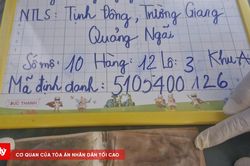 NTLS: Tịnh Đông, Trường Giang
Quảng Ngãi
Số mộ: 10 Hàng: 12 Lô: 3 Khu A
Mã định danh: 5105400126
ĐỨC THÀNH
CƠ QUAN CỦA TÒA ÁN NHÂN DÂN TỐI CAO